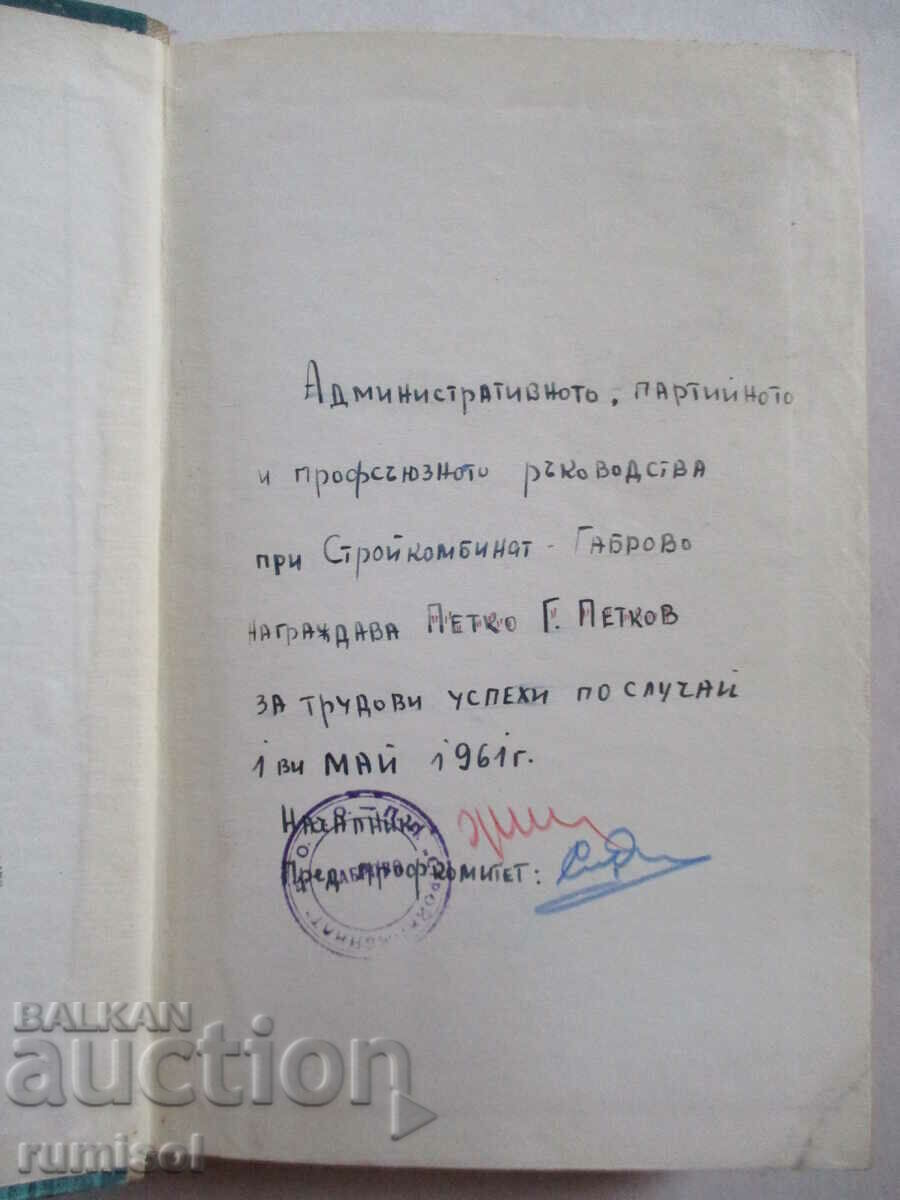 Административното, партийното
и профсъюзното ръководства
при Стройкомбинат - Габрово
награждава Петко Г. Петков
за трудови успехи по случай
1ви май 1961г.
Началник
Пред. профкомитет:
ГАБРОВО
BALKAN
auction
rumisol